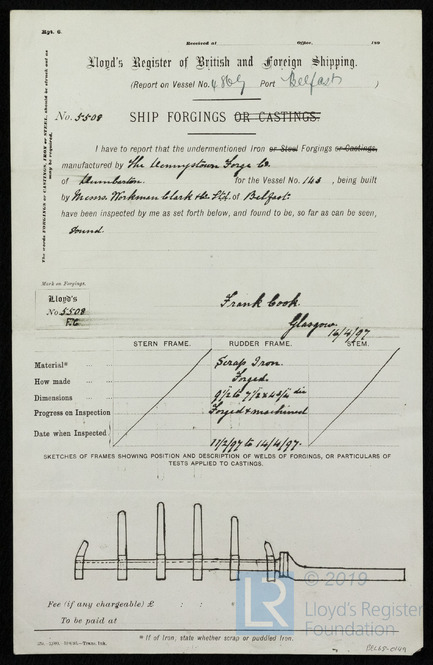 Rpt. 6.
Received at Office, 189
Lloyd's Register of British and Foreign Shipping.
(Report on Vessel No. 4869 Port Belfast)
No. 5508 SHIP FORGINGS OR CASTINGS.
The words FORGINGS or CASTINGS, IRON or STEEL, should be struck out as may be required.
I have to report that the undermentioned Iron or Steel Forgings or Castings,
manufactured by The Dennystown Forge Co.
of Dumbarton. for the Vessel No. 143, being built
by Messrs. Workman Clark & Co Ltd. of Belfast
have been inspected by me as set forth below, and found to be, so far as can be seen,
sound.
Mark on Forgings.
Lloyd's
No 5508
F.C.
Frank Cook.
Glasgow
14/4/97
STERN FRAME. RUDDER FRAME. STEM.
Material* Scrap Iron.
How made Forged.
Dimensions 9½ to 7½ x 4¾ dia
Progress on Inspection Forged & machined
Date when Inspected 11/2/97 to 14/4/97.
SKETCHES OF FRAMES SHOWING POSITION AND DESCRIPTION OF WELDS OF FORGINGS, OR PARTICULARS OF
TESTS APPLIED TO CASTINGS.
Fee (if any chargeable) £ : :
To be paid at
* If of Iron, state whether scrap or puddled Iron.
Transr. Ink.
LR
© 2019
Lloyd's Register
Foundation